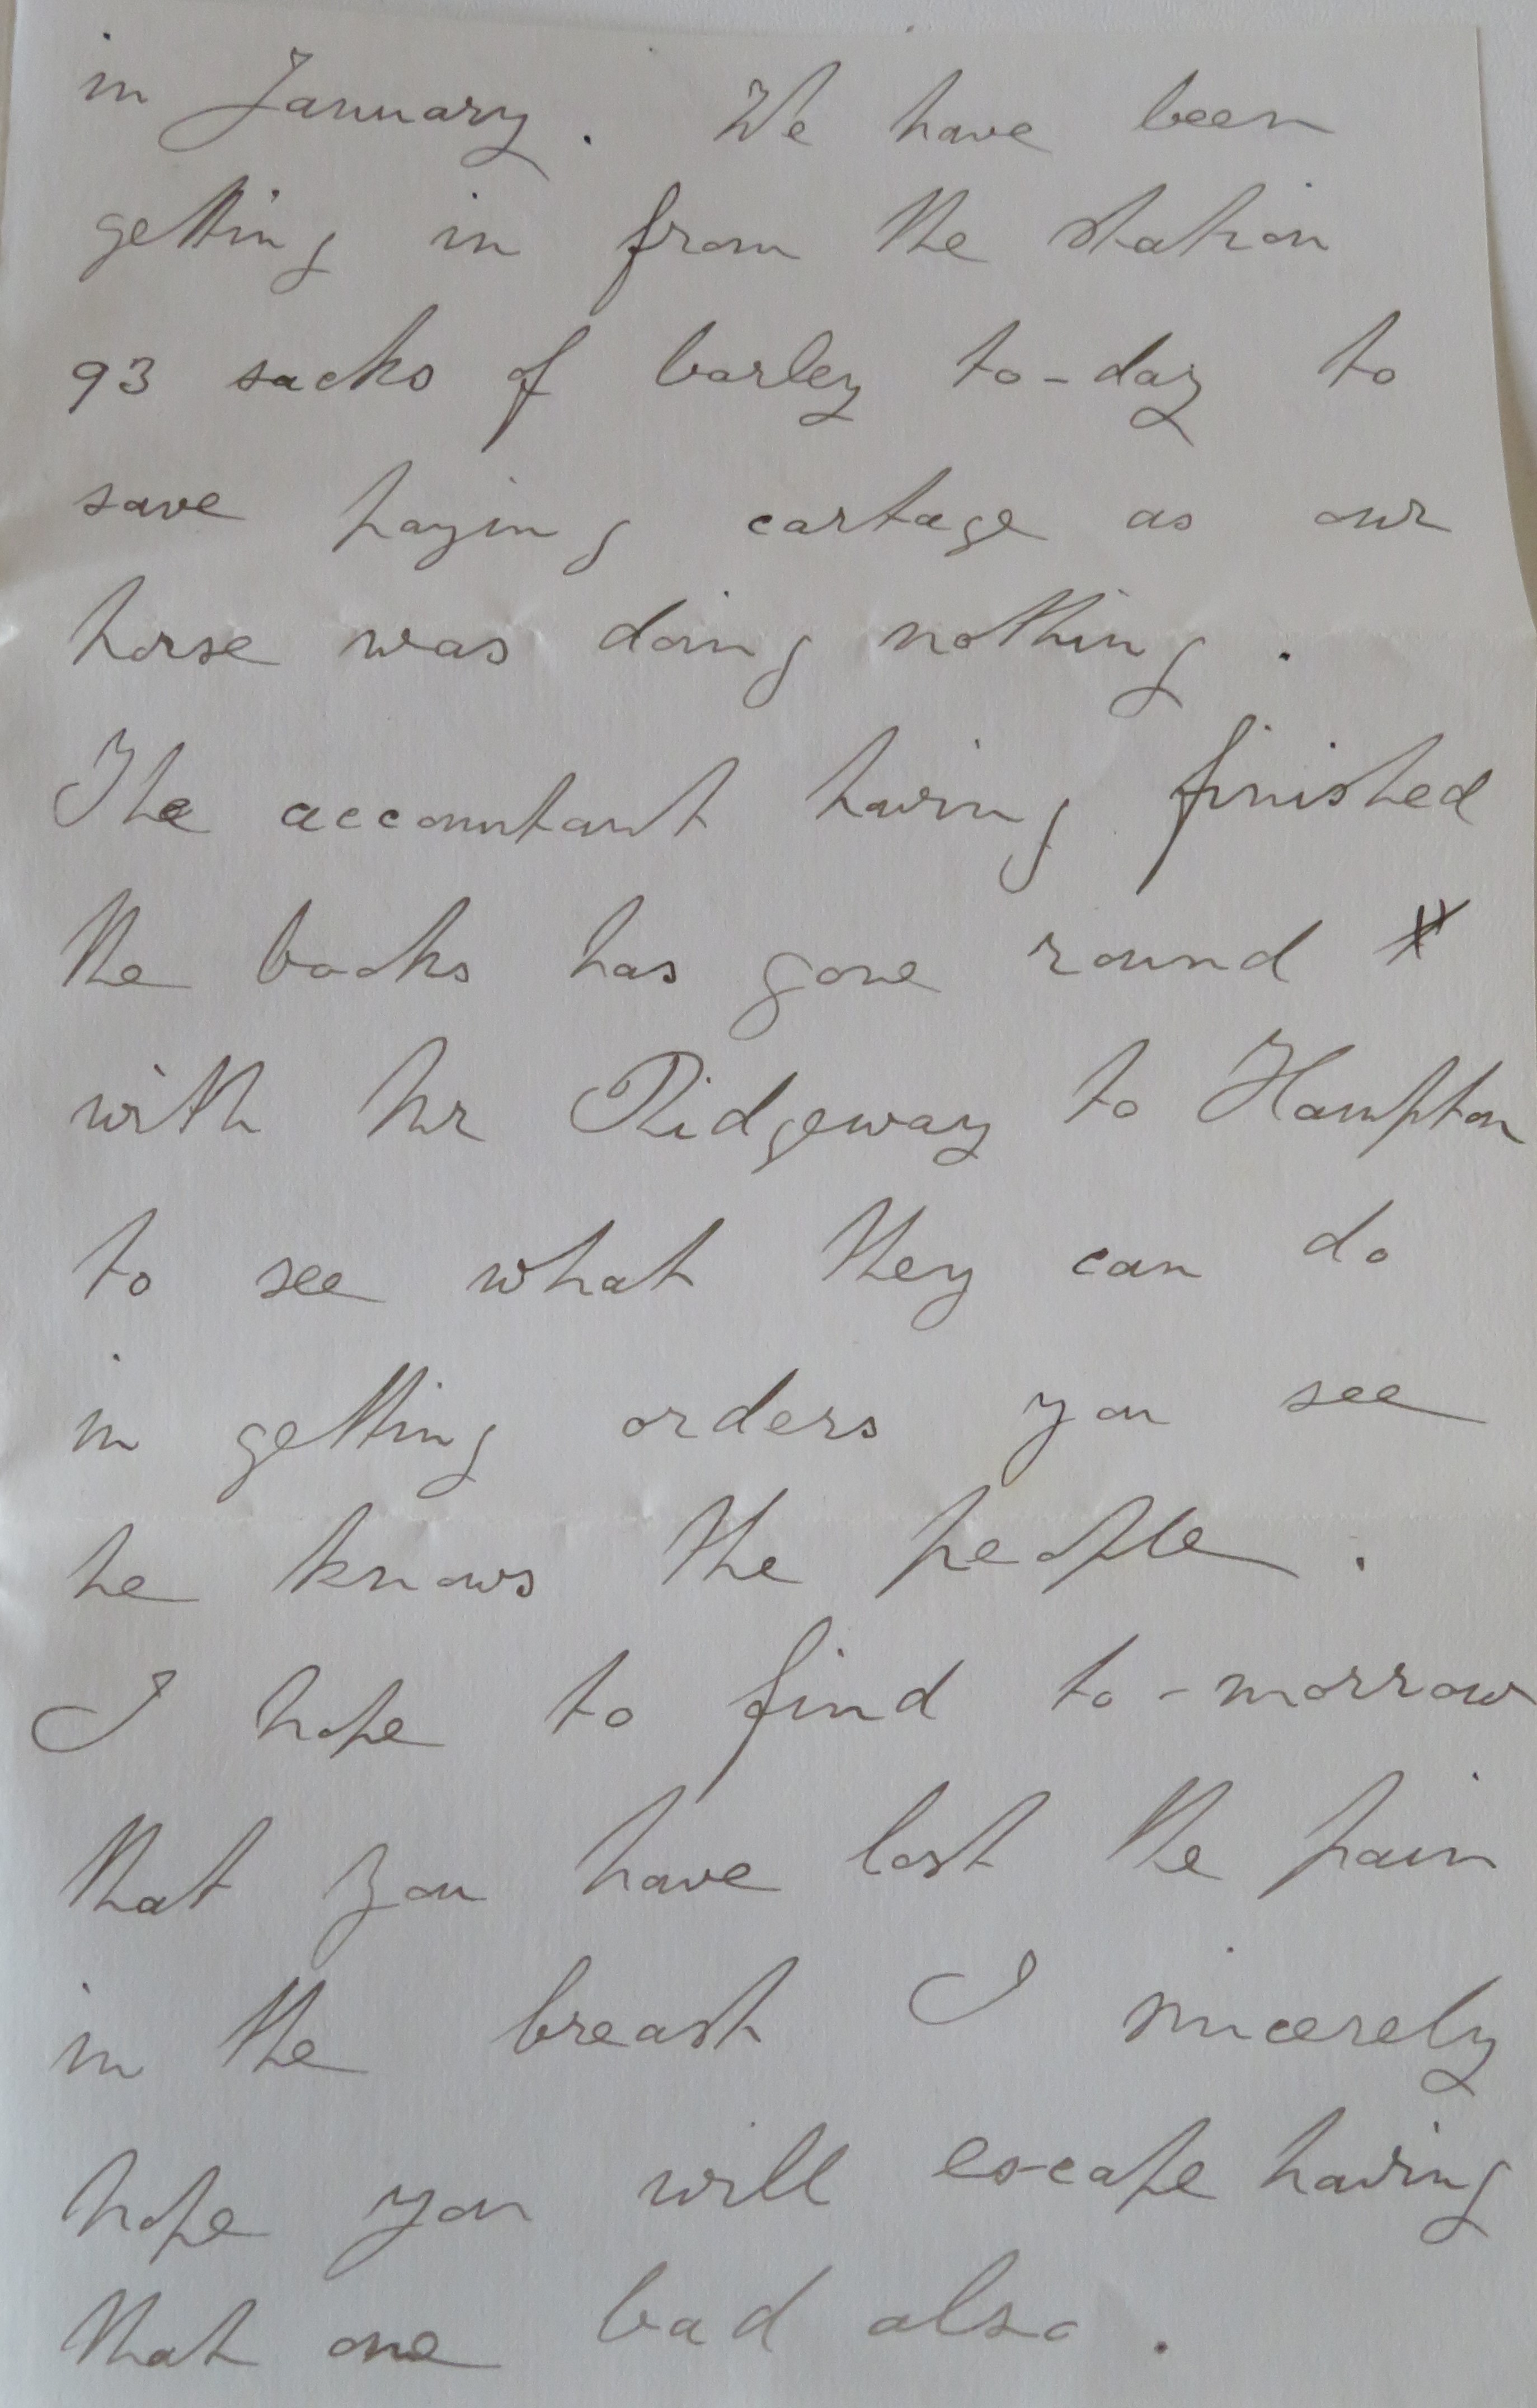 in January. We have been
getting in from the station
93 sacks of barley to-day to
save paying cartage as our
horse was doing nothing.
The accountant having finished
the books has gone round
with Mr Ridgeway to Hampton
to see what they can do
in getting orders you see
he knows the people.
I hope to find to-morrow
that you have lost the pain
in the breast I sincerely
hope you will escape having
that one bad also.